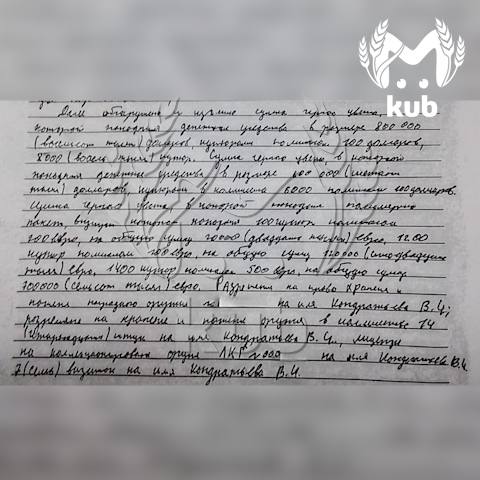 M
kub
Далее обнаружена и изъята сумка черного цвета, в
которой находятся денежные средства в размере 800 000
(восемьсот тысяч) долларов, купюрами номиналом 100 долларов,
8000 (восемь тысяч) купюр. Сумка черного цвета, в которой
находятся денежные средства в размере 000 (
тысяч) долларов, купюрами в количестве 6000 номиналом 100 долларов.
Сумка черного цвета в которой находится полимерный
пакет, внутри которого находятся 100 купюр номиналом
200 евро, на общую сумму 20000 (двадцать тысяч) евро, 1200
купюр номиналом 100 евро, на общую сумму 120000 (сто двадцать
тысяч) евро, 1400 купюр номиналом 500 евро на общую сумму
700000 (семьсот тысяч) евро. Разрешение на право хранения и
ношения наградного оружия на имя Кондратьева В.Ч.;
разрешение на хранение и ношение оружия в количестве 14
(четырнадцати) штук на имя Кондратьева В.Ч., лицензия
на коллекционирование оружия ЛКГ № 000 на имя Кондратьева В.Ч.
7 (семь) визиток на имя Кондратьева В.Ч.